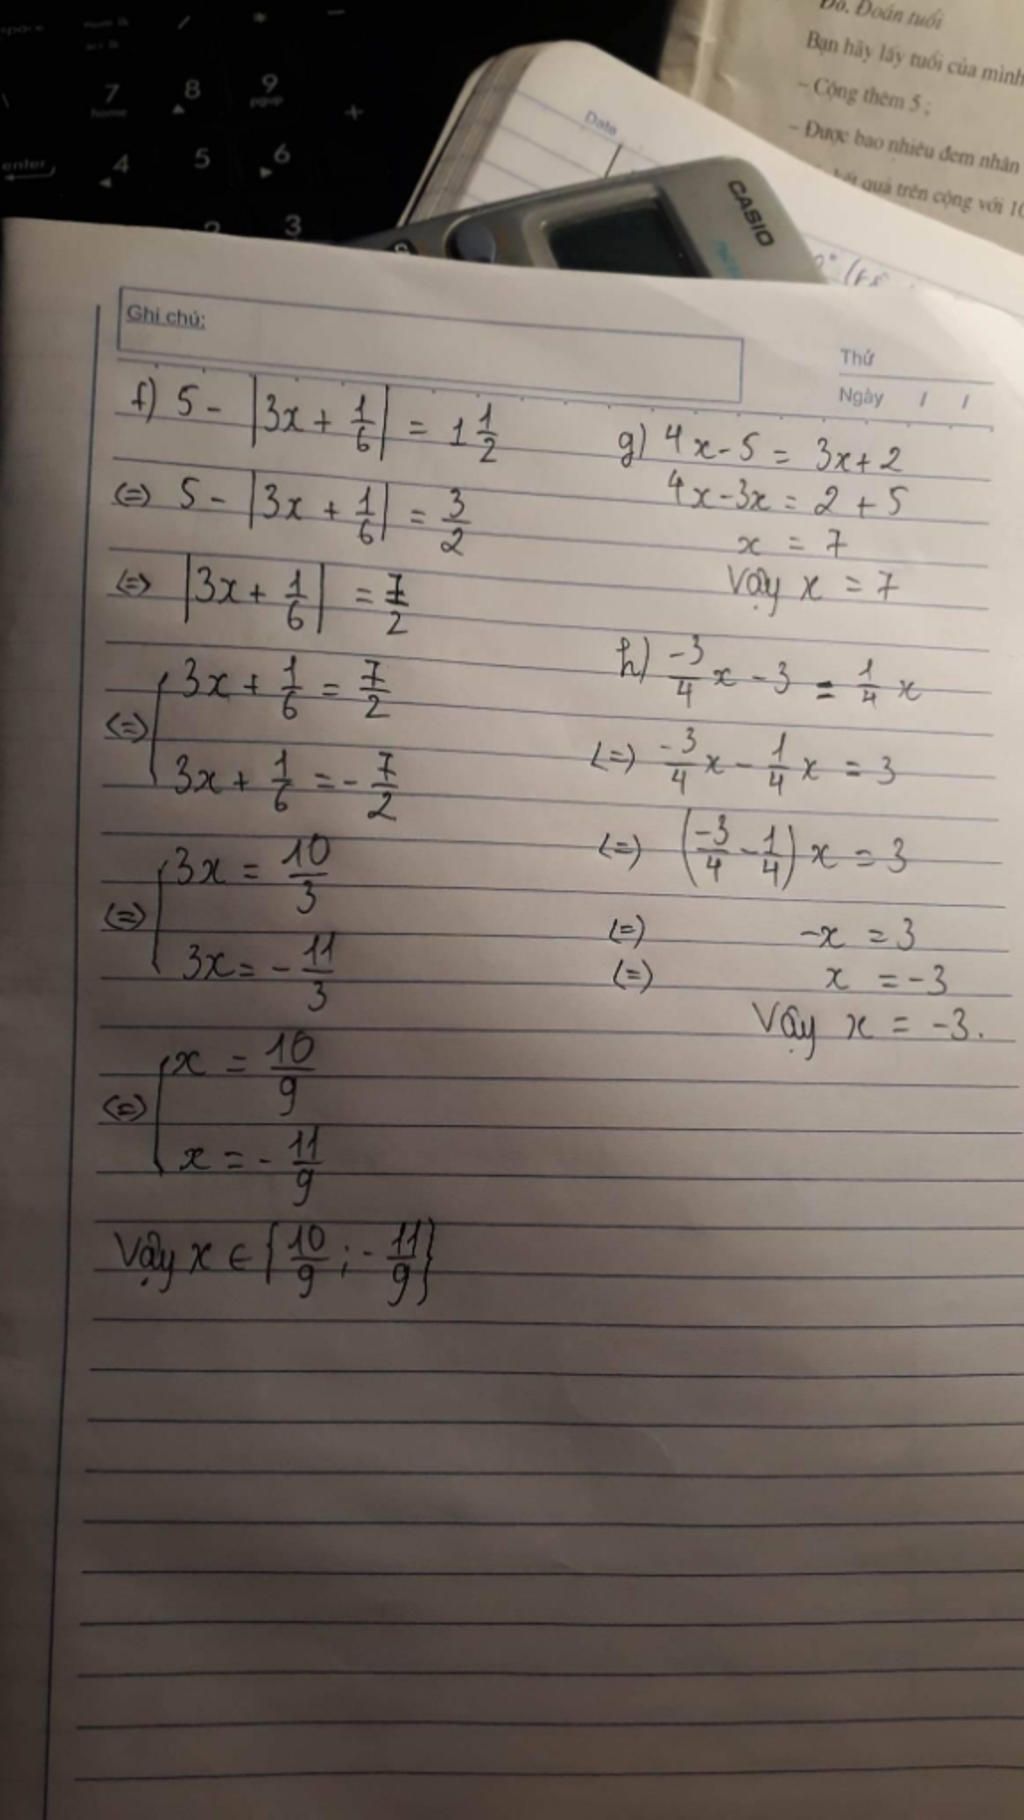 7
home
8
9
pgup
+
enter
4
5
6
3
Date
CASIO
Đố. Đoán tuổi
Bạn hãy lấy tuổi của mình
- Cộng thêm 5 ;
- Được bao nhiêu đem nhân
kết quả trên cộng với 10
Ghi chú:
Thứ
Ngày / /
f) 5 - |3x + 1/6| = 1 1/2
(=) 5 - |3x + 1/6| = 3/2
(=) |3x + 1/6| = 7/2
(=) [3x + 1/6 = 7/2
3x + 1/6 = - 7/2
(=) [3x = 10/3
3x = - 11/3
(=) [x = 10/9
x = - 11/9
Vậy x ∈ {10/9 ; - 11/9}
g) 4x - 5 = 3x + 2
4x - 3x = 2 + 5
x = 7
Vậy x = 7
h) -3/4 x - 3 = 1/4 x
(=) -3/4 x - 1/4 x = 3
(=) (-3/4 - 1/4) x = 3
(=) -x = 3
(=) x = -3
Vậy x = -3.